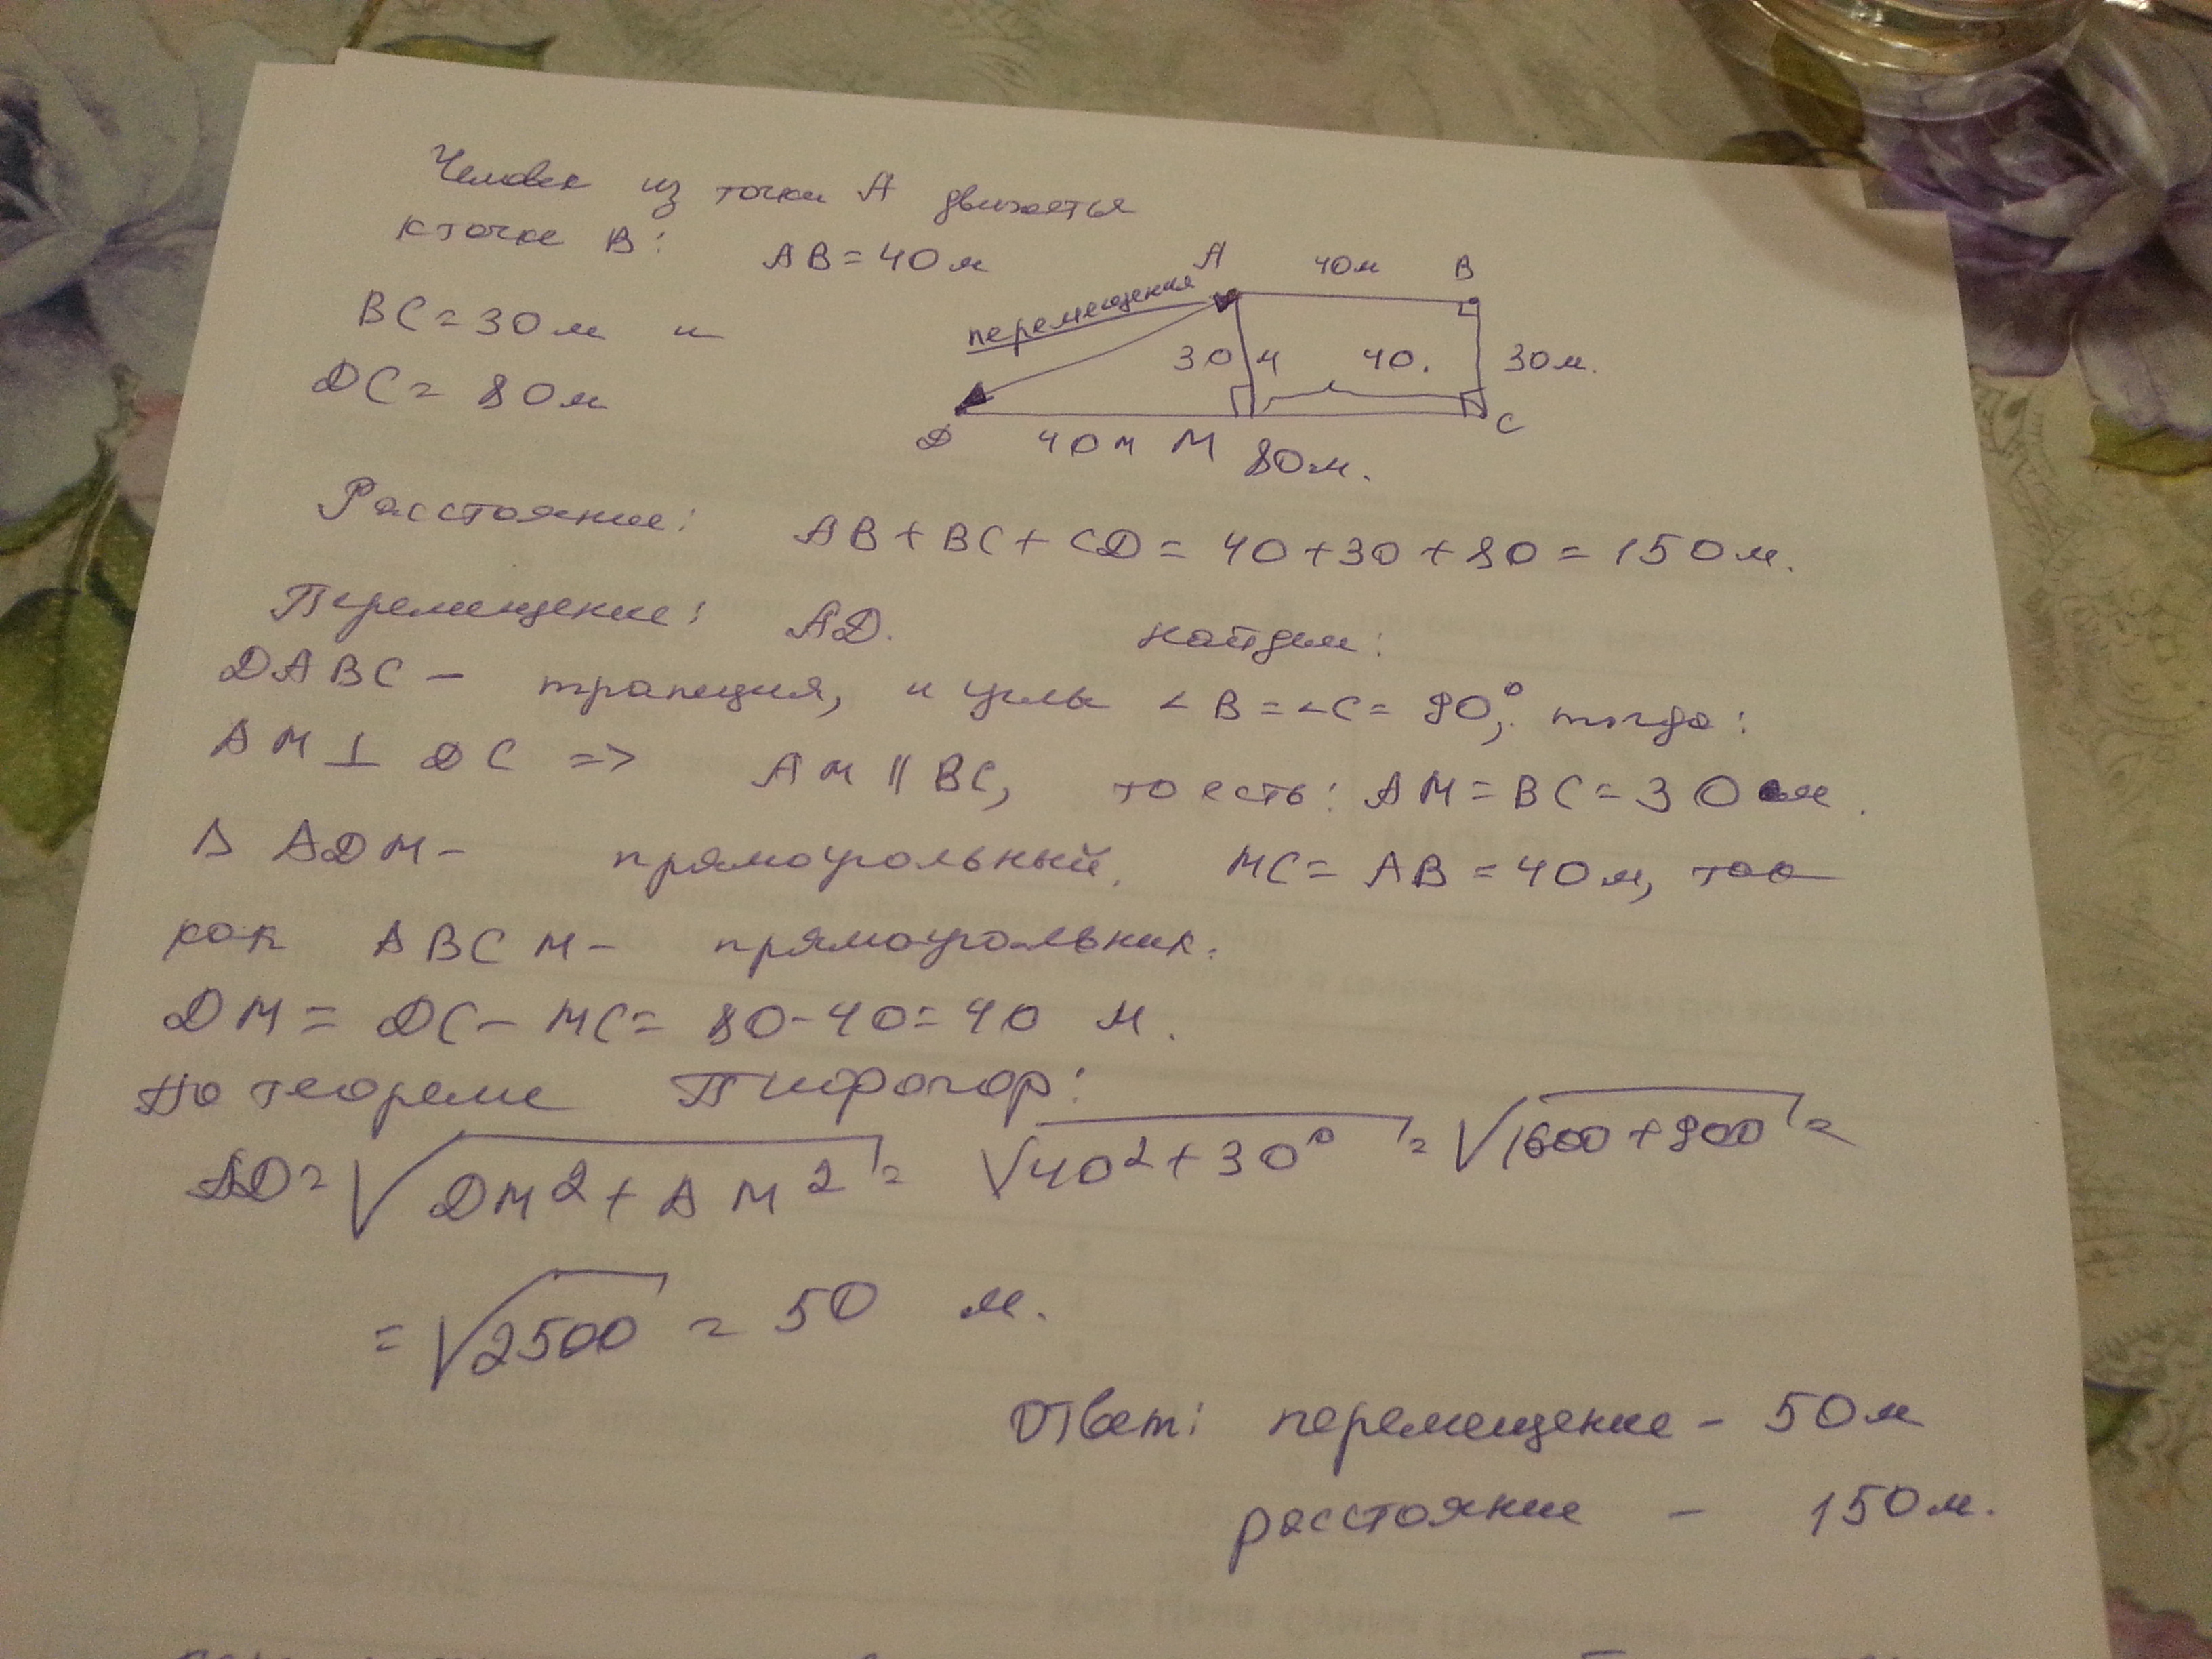 Человек из точки А движеться
к точке В: АВ = 40 м
ВС = 30 м и
DC = 80 м
А 40м В
перемещения
30 м 40. 30 м.
D 40 м М 80 м. С
Расстояние: АВ + ВС + CD = 40 + 30 + 80 = 150 м.
Перемещение: AD. найдем:
DABC – трапеция, и углы ∠B = ∠C = 90°, тогда:
AM ⊥ DC => AM || BC, то есть: AM = BC = 30 м.
Δ ADM – прямоугольный. MC = AB = 40 м, так
как ABCM – прямоугольник.
DM = DC – MC = 80 - 40 = 40 м.
По теореме Пифагор:
AD = √DM² + AM² = √40² + 30² = √1600 + 900 =
= √2500 = 50 м.
Ответ: перемещение – 50 м
расстояние – 150 м.